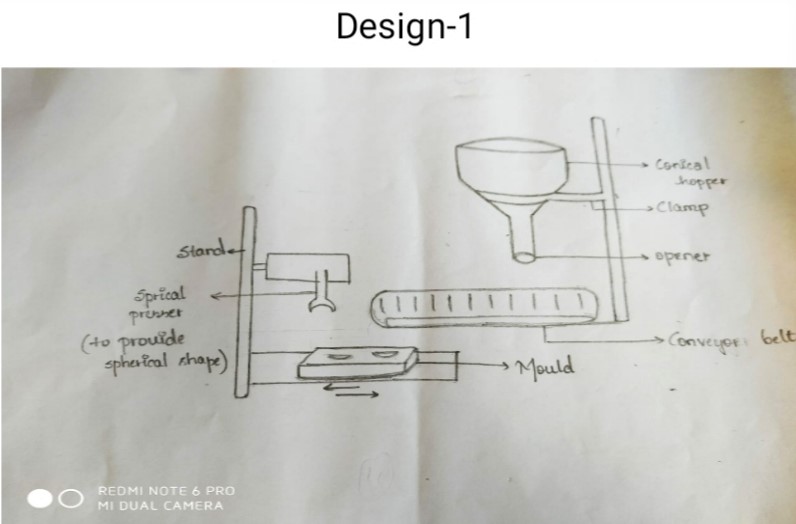 Design-1
Conical
hopper
Clamp
opener
Stand
Sprical
prinner
(to provide
spherical shape)
Conveyor belt
Mould
REDMI NOTE 6 PRO
MI DUAL CAMERA